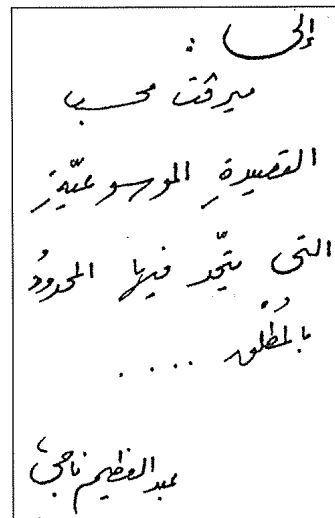 إلى :
ميرڤت محسب
القصيدةِ الموسوعيّةِ
التى يتّحد فيها المحدودُ
بالمُطْلق ....
عبد العظيم ناجى